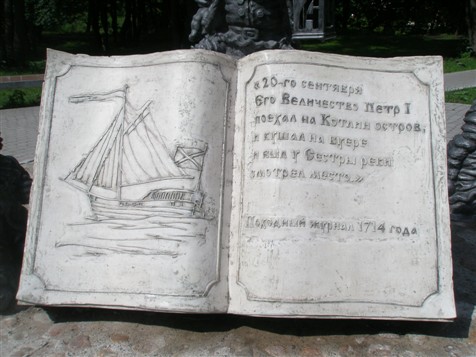 « 20-го сентября
Его Величество Петр I
поехал на Котлин остров,
и кушал на буере
и был у Сестры реки
смотрел места.»
Походный журнал 1714 года